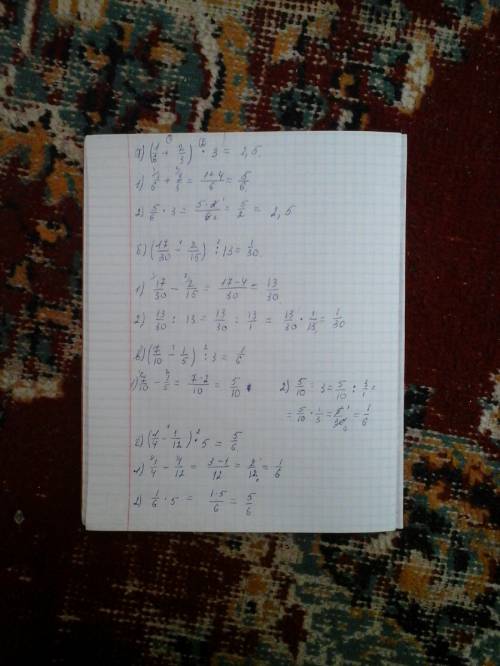 а) (1/6 + 2/3) · 3 = 2,5.
1) 1/6 + 2/3 = 1+4/6 = 5/6.
2) 5/6 · 3 = = 5/2 = 2,5
б) (17/30 - 2/15) : 13 = 1/30.
1) 17/30 - 2/15 = 17-4/30 = 13/30
2) 13/30 : 13 = 13/30 : 13/1 = 13/30 · 1/13 = 1/30
в) (7/10 - 1/5) : 3 = 1/6
1) 7/10 - 1/5 = 7-2/10 = 5/10.
2) 5/10 : 3 = 5/10 : 3/1 =
= 5/10 · 1/3 = = 1/6
(1/4 - 1/12) · 5 = 5/6
1) 1/4 - 1/12 = 3-1/12 = 2/12 = 1/6
2) 1/6 · 5 = 1·5/6 = 5/6